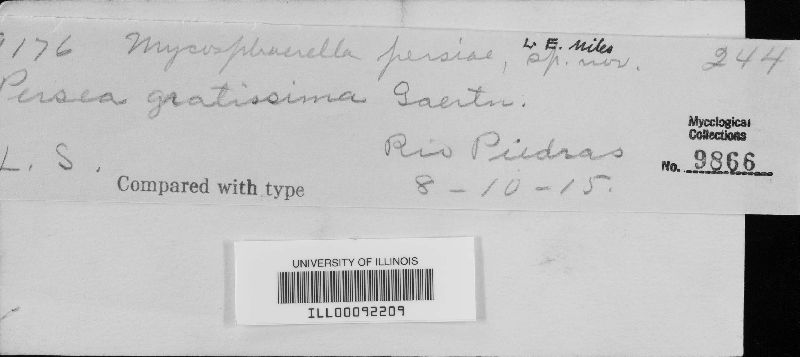 9176 Mycosphaerella persiae, L. E. Miles sp. nov. 244
Persea gratissima Gaertn.
Mycological
Collections
No. 9866
L. S. Rio Piedras
Compared with type 8-10-15.
UNIVERSITY OF ILLINOIS
ILL00092209